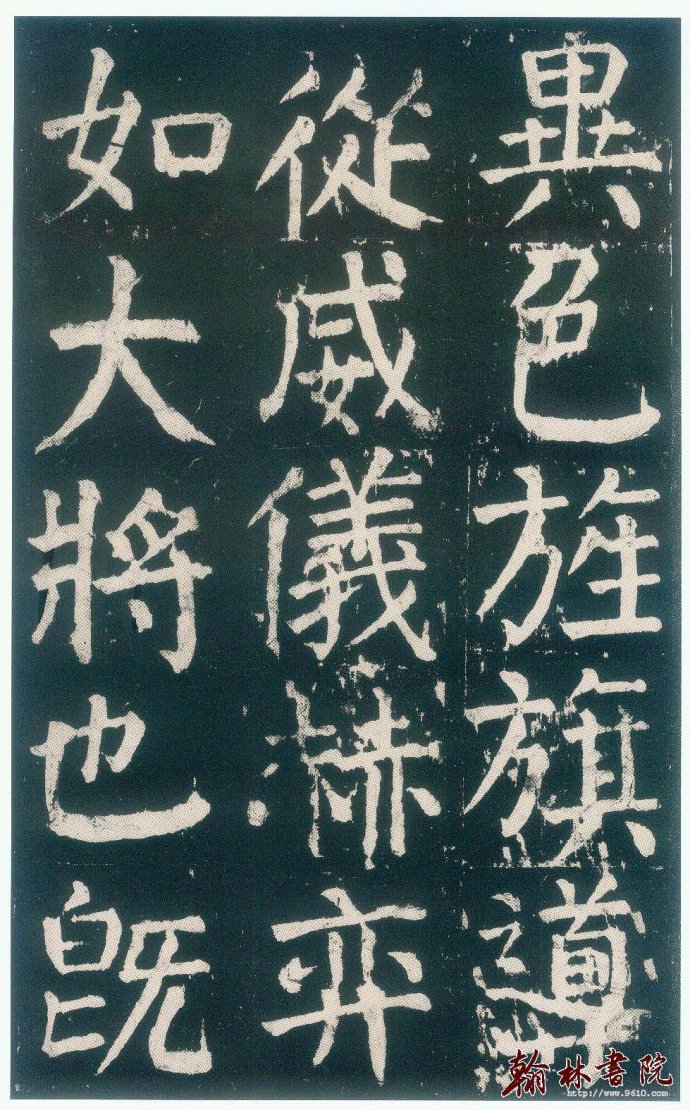 異色旌旗導
從威儀赫弈
如大將也既
翰林書院
http://www.9610.com